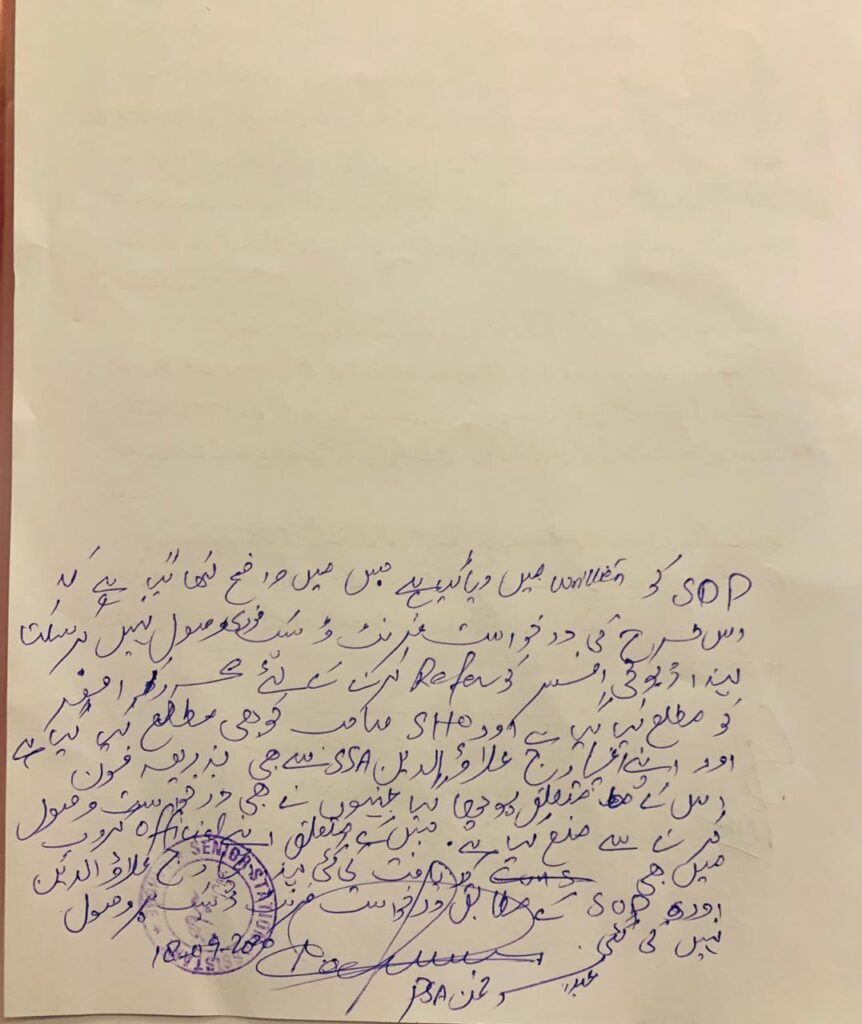 SOP کو written میں دیا گیا ہے جس میں واضح لکھا گیا ہے کہ
اس طرح کی درخواست فرنٹ ڈسک وصول نہیں کرسکتا
لہذا ڈیوٹی افسر کو Refer کرنے کے لئے محرر افسر
کو مطلع کیا گیا ہے اور SHO صاحب کو بھی مطلع کیا گیا ہے
اور اپنے انچارج علاؤالدین SSA سے بھی بذریعہ فون
اس کے متعلق پوچھا گیا جنہوں نے بھی درخواست وصول
کرنے سے منع کیا ہے۔ جس کے متعلق اپنے official گروپ
میں بھی دریافت کی گئی انچارج علاؤالدین
اور SOP کے مطابق درخواست فرنٹ ڈسک پر وصول
نہیں کی گئی۔
SENIOR STATION ASSISTANT
18-09-2020
PSA